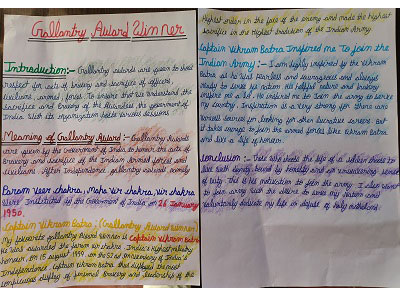 Gallantry Award Winner
Introduction:- Gallantry awards are given to show
respect for acts of bravery and sacrifice of officers,
civilians, armed forces. To ensure that we understand the
sacrifice and bravery of the Awardees, the government of
India such its organization hosts various sessions.
Meaning of Gallantry Award:- Gallantry Awards
are given by the Government of India to honor the acts of
bravery and sacrifice of the Indian Armed forces and
civilians. After Independence gallantry awards namely
Param veer chakra, Maha vir chakra, vir chakra
were instituted by the Government of India on 26 January
1950.
Captain Vikram Batra, (Gallantry Award winner)
My favourite gallantry Award winner is Captain Vikram Batra
he was awarded the Param vir chakra, India's highest military
honour, on 15 august 1999, on the 52nd anniversary of India's
Independence. Captain Vikram batra that displayed the most
display of personal bravery and leadership of the
highest order in the face of the enemy and made the highest
sacrifice in the highest tradition of the Indian Army.
Captain Vikram Batra Inspired me To Join the
Indian Army:- I am highly inspired by the Vikram
Batra as he was fearless and courageous and always
ready to serve for nation. His helpful nature and bravery
inspire me a lot. He inspired me to join the army to serve
my country. Inspiration is a very strong for there are
various sources for looking for other lucrative careers. But
it takes courage to join the armed forces like vikram Batra
and live a life of honour.
Conclusion:- Those who choose the life of a soldier choose to
live with dignity, bound by honesty and an unwavering sense
of duty. That is his motivation to join the army. I also want
to join army with the desire to serve my Nation and
voluntarily dedicate my life in defense of holy motherland.